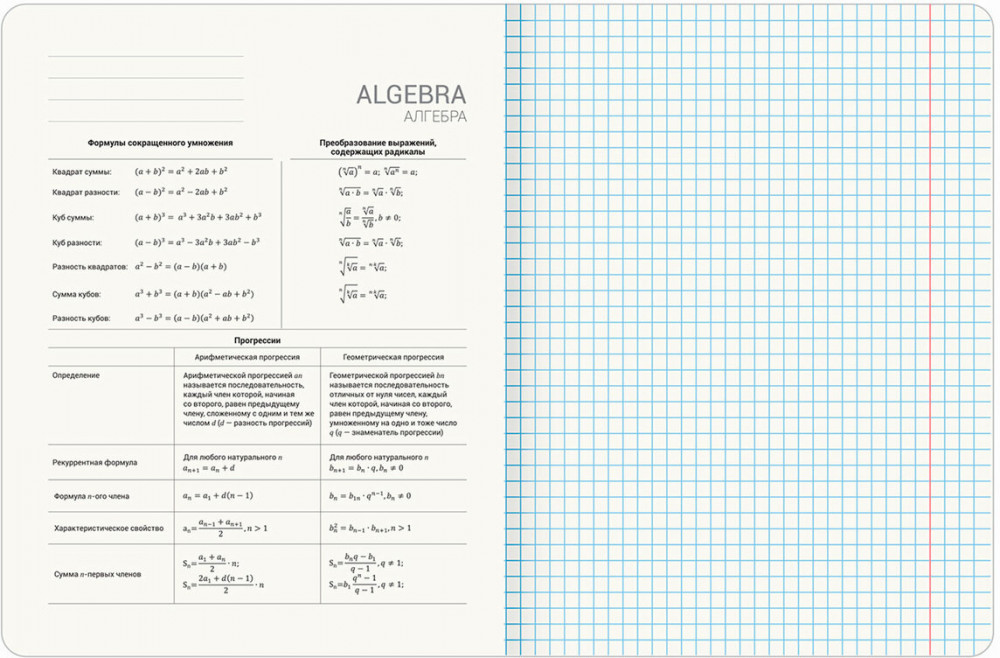 ALGEBRA
АЛГЕБРА
Формулы сокращенного умножения
Квадрат суммы: (a + b)² = a² + 2ab + b²
Квадрат разности: (a − b)² = a² − 2ab + b²
Куб суммы: (a + b)³ = a³ + 3a²b + 3ab² + b³
Куб разности: (a − b)³ = a³ − 3a²b + 3ab² − b³
Разность квадратов: a² − b² = (a − b)(a + b)
Сумма кубов: a³ + b³ = (a + b)(a² − ab + b²)
Разность кубов: a³ − b³ = (a − b)(a² + ab + b²)
Преобразование выражений,
содержащих радикалы
(ⁿ√a)ⁿ = a; ⁿ√aⁿ = a;
ⁿ√a · b = ⁿ√a · ⁿ√b;
ⁿ√a/b = ⁿ√a/ⁿ√b, b ≠ 0;
ⁿ√a · b = ⁿ√a · ⁿ√b;
ⁿ√ᵏ√a = ⁿ·ᵏ√a;
ⁿ√ᵏ√a = ⁿ·ᵏ√a;
Прогрессии
Арифметическая прогрессия Геометрическая прогрессия
Определение
Арифметической прогрессией an
называется последовательность,
каждый член которой, начиная
со второго, равен предыдущему
члену, сложенному с одним и тем же
числом d (d — разность прогрессий)
Геометрической прогрессией bn
называется последовательность
отличных от нуля чисел, каждый
член которой, начиная со второго,
равен предыдущему члену,
умноженному на одно и тоже число
q (q — знаменатель прогрессии)
Рекуррентная формула
Для любого натурального n
aₙ₊₁ = aₙ + d
Для любого натурального n
bₙ₊₁ = bₙ · q, bₙ ≠ 0
Формула n-ого члена aₙ = a₁ + d(n − 1) bₙ = b₁ₙ · qⁿ⁻¹, bₙ ≠ 0
Характеристическое свойство aₙ= (aₙ₋₁ + aₙ₊₁)/2, n > 1 bₙ² = bₙ₋₁ · bₙ₊₁, n > 1
Сумма n-первых членов
Sₙ= (a₁ + aₙ)/2 · n;
Sₙ= (2a₁ + d(n − 1))/2 · n
Sₙ= (bₙq − b₁)/(q − 1), q ≠ 1;
Sₙ=b₁ (qⁿ − 1)/(q − 1), q ≠ 1;